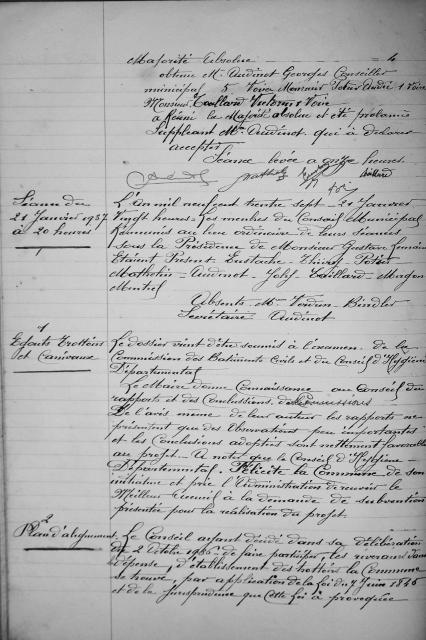 Majorité Absolue 4
obtenu Mr. Audinot Georges Conseiller
municipal 5 Voix Monsieur Potier André 1 Voix
Monsieur Taillard Victorin 1 Voix
a Réuni la Majorité absolue et été proclamé
Suppléant Mr. Audinot qui a déclaré
accepter
Séance levée à onze heures
Séance du
21 Janvier 1937
à 20 heures
L'An mil neuf cent trente sept 21 Janvier
Vingt heures les membres du Conseil Municipal
Réunis au lieu ordinaire de leurs séances
sous la Présidence de Monsieur Gustave
Etaient Présent Eustache Thiery Potier
Mathelin Audinot Joly Taillard
Absents Mrs Verdun Bindler
Secrétaire Audinot
1
Egouts Trottoirs
et Caniveaux
Le dossier vient d'être soumis à l'examen de la
Commission des Batiments Civils et du Conseil d'Hygiène
Départemental
Le Maire donne Connaissance au Conseil du
rapports et des Conclusions de
De l'avis même de leur auteur les rapports ne
présentent que des Observations peu importantes
et les Conclusions adoptées sont nettement favorable
au projet. A noter que le Conseil d'Hygiène
Départemental. Félicite la Commune de son
initiative et prie l'Administration de réserver le
Meilleur accueil à la demande de subvention
présentée pour la réalisation du projet.
2
Plan d'alignement
Le Conseil ayant décidé dans sa délibération
du 2 Octobre 1936 de faire participer les riverains
dépense d'établissement des trottoirs la Commune
se trouve, par application de la loi du 7 Juin 1845
et de la Jurisprudence que cette loi a provoquée